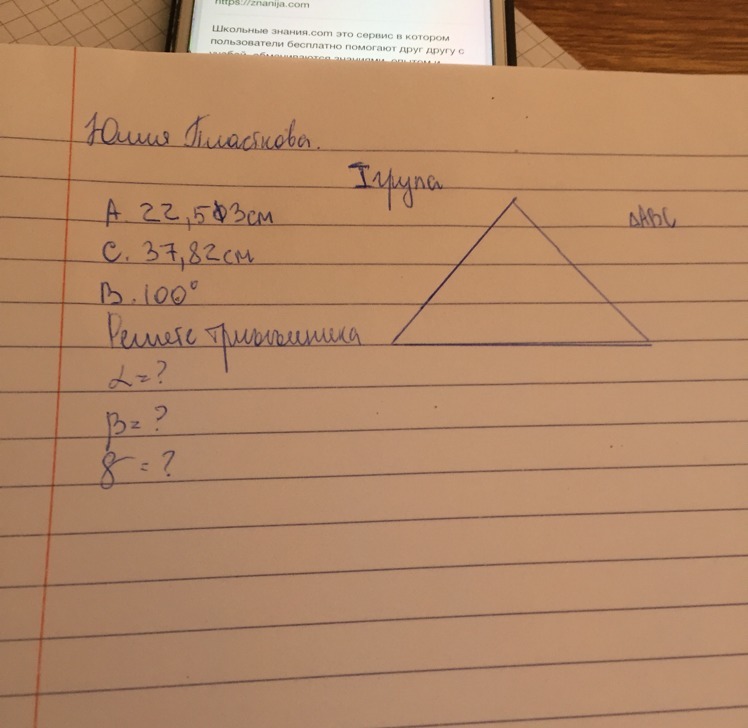 https://znanija.com
Школьные знания.com это сервис в котором
пользователи бесплатно помогают друг другу с
Юлия Пласткова.
I група
А. 22,53см
ΔABC
С. 37,82см
В. 100°
Решете триъгълника
α=?
β=?
γ=?